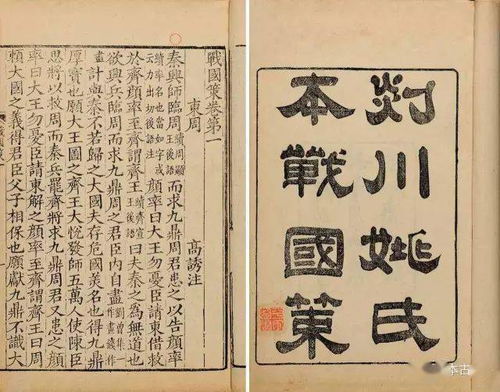 剡川姚氏
本戰國策
戰國策卷第一
東周 高誘注
秦興師臨周續周顯王後語而求九鼎周君患之以告顏率
續率名也當如字或云力出切後語注顏率曰大王勿憂臣請東借救
於齊顏率至齊續齊宣王後語謂齊王曰夫秦之為無道也
欲興兵臨周而求九鼎周之君臣內自盡劉曾集一作
畫計與秦不若歸之大國夫存危國美名也得九鼎
厚寶也願大王圖之齊王大悅發師五萬人使陳臣
思將以救周而秦兵罷齊將求九鼎周君又患之顏
率曰大王勿憂臣請東解之顏率至齊謂齊王曰周
賴大國之義得君臣父子相保也願獻九鼎不識大
本古